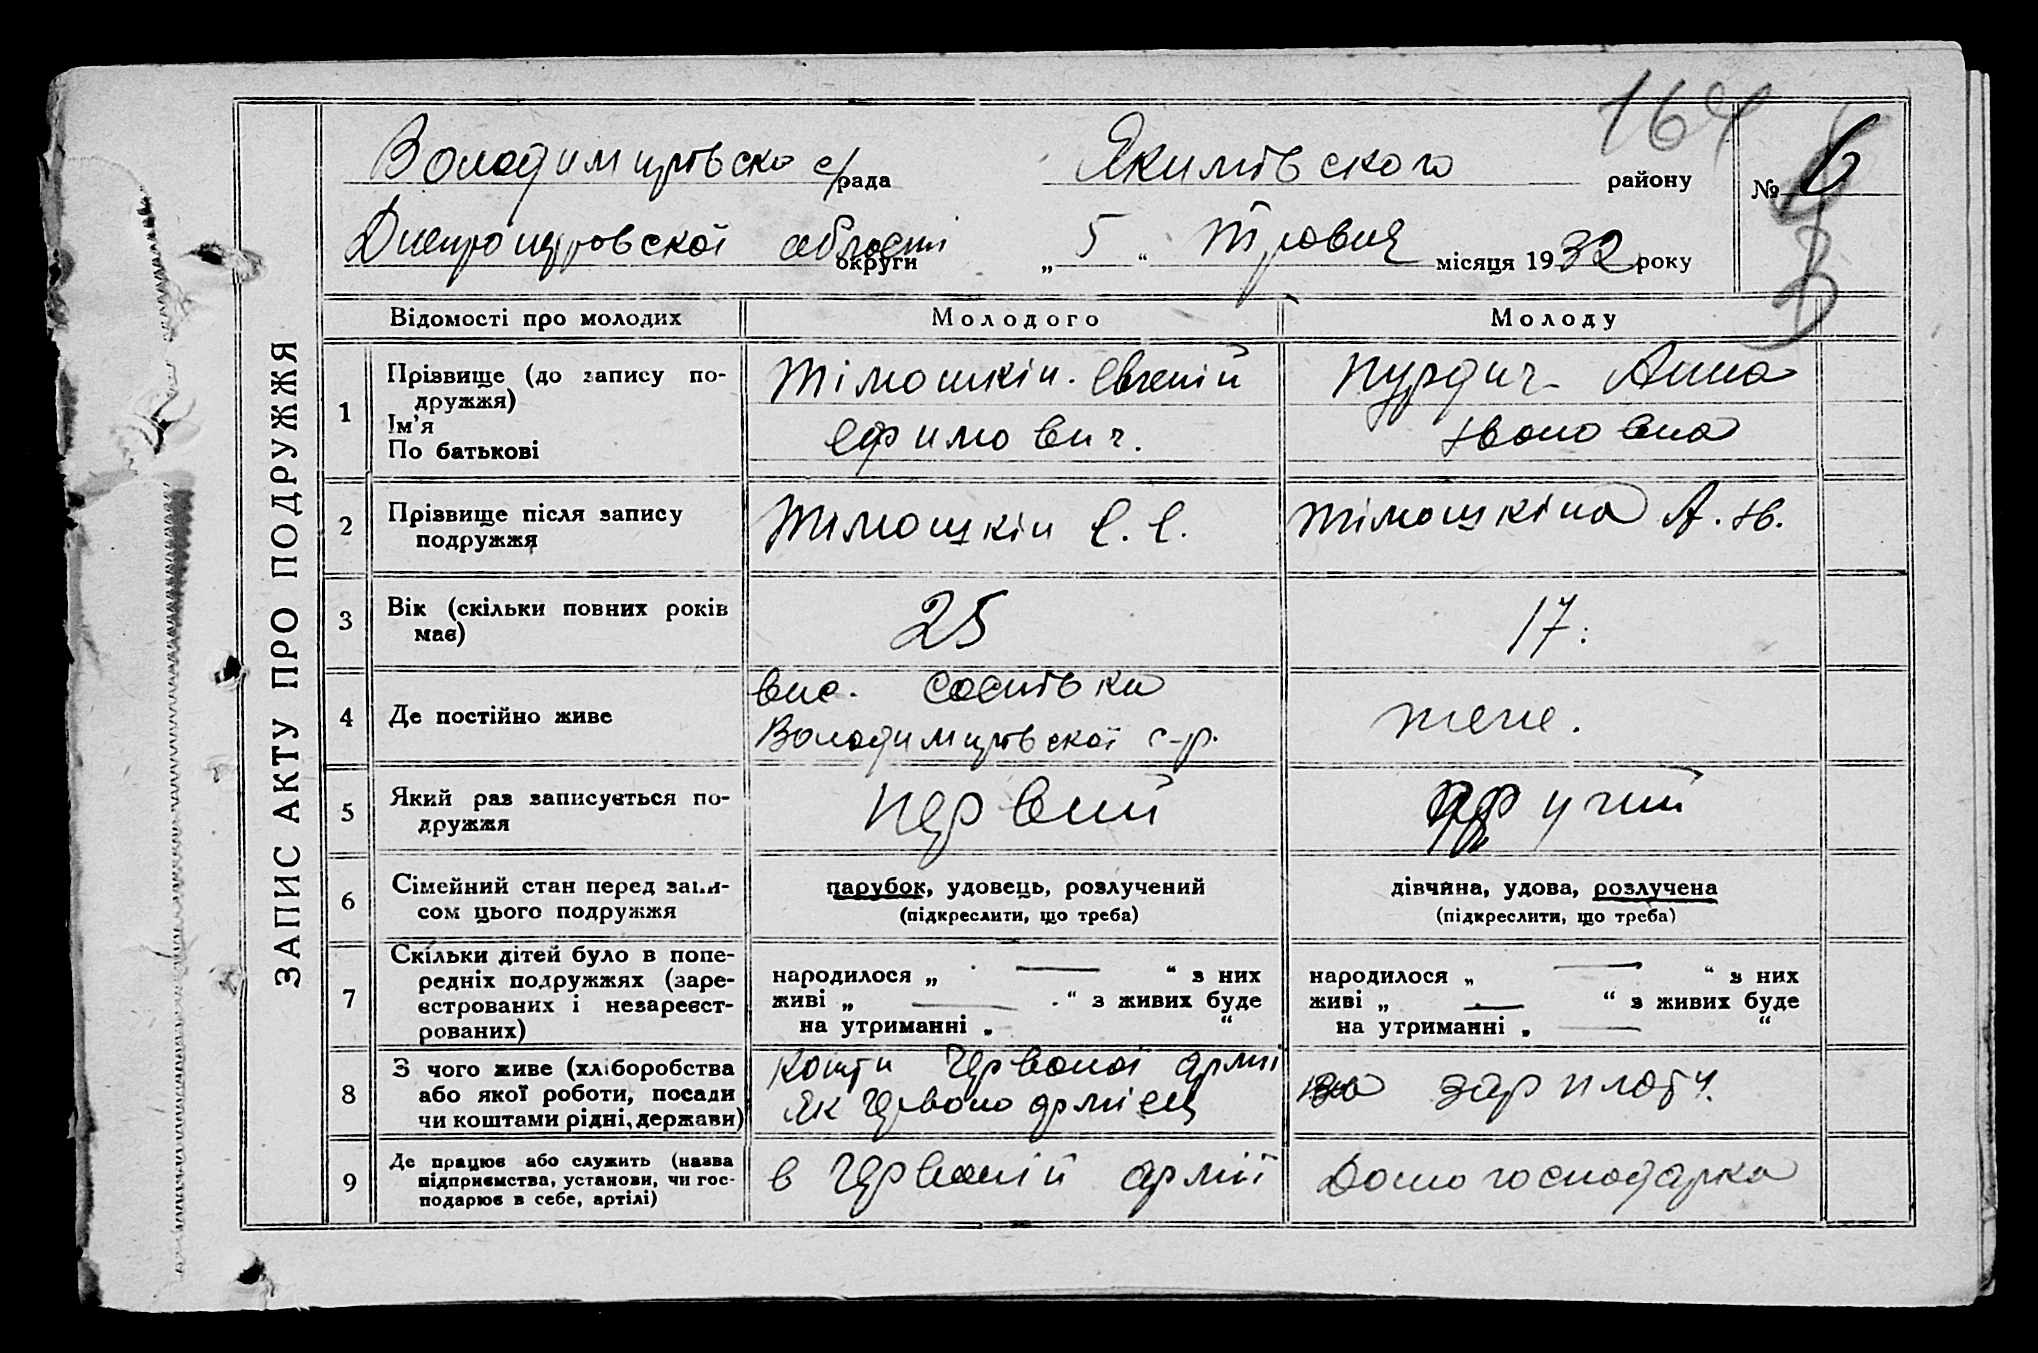 164
Володимирівська с/рада Якимівського району № 6
Днепропетровскої області округи „ 5 “ Травня місяця 1932 року
ЗАПИС АКТУ ПРО ПОДРУЖЖЯ
Відомості про молодих Молодого Молоду
1 Прізвище (до запису по-
дружжя)
Ім'я
По батькові
Тімошкін Евгеній
Ефимович.
Анна
Ивановна
2 Прізвище після запису
подружжя
Тімошкін Е. Е.
Тімошкіна А. Ив.
3 Вік (скільки повних років
має)
25
17.
4 Де постійно живе
вис.
Володимирівскої с-р.
теже.
5 Який раз записується по-
дружжя
первий
другий
6 Сімейний стан перед запи-
сом цього подружжя
парубок, удовець, розлучений
(підкреслити, що треба)
дівчина, удова, розлучена
(підкреслити, що треба)
7 Скільки дітей було в попе-
редніх подружжях (заре-
єстрованих і незареєст-
рованих)
народилося „ — “ з них
живі „ — “ з живих буде
на утриманні „ “
народилося „ — “ з них
живі „ — “ з живих буде
на утриманні „ — “
8 З чого живе (хліборобства
або якої роботи, посади
чи коштами рідні, держави)
Кошти Червоної армії
Як Червоно армієць
зарплату.
9 Де працює або служить (назва
підприємства, установи, чи гос-
подарює в себе, артілі)
в Червоній армії
Домогосподарка